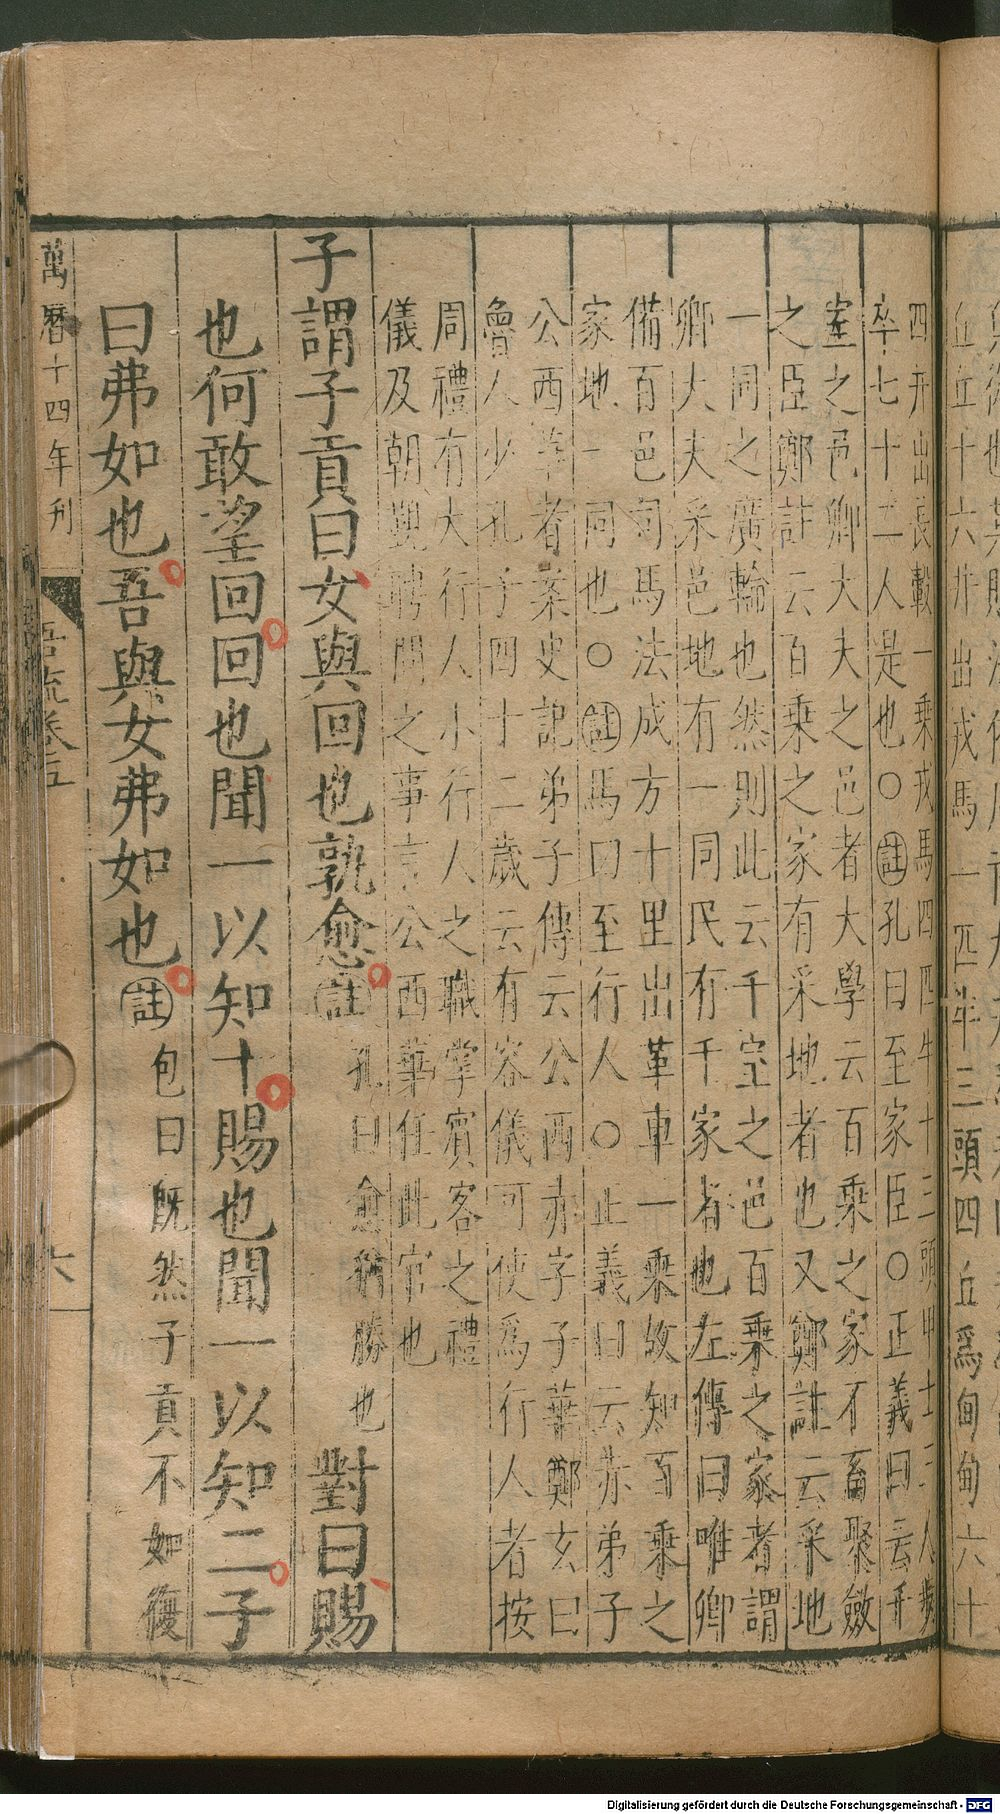 四井出長轂一乘戎馬四匹牛十二頭甲士三人步
卒七十二人是也○註孔曰至家臣○正義曰云千
室之邑卿大夫之邑者大學云百乘之家不畜聚斂
之臣鄭註云百乘之家有采地者也又鄭註云采地
一同之廣輪也然則此云千室之邑百乘之家者謂
卿大夫采邑地有一同民有千家者也左傳曰唯卿
備百邑司馬法成方十里出革車一乘故知百乘之
家地一同也○註馬曰至行人○正義曰云赤弟子
公西華者案史記弟子傳云公西赤字子華鄭玄曰
魯人少孔子四十二歲云有容儀可使為行人者按
周禮有大行人小行人之職掌賓客之禮
儀及朝覲聘問之事言公西華任此官也
子謂子貢曰女與回也孰愈註孔曰愈猶勝也對曰賜
也何敢望回回也聞一以知十賜也聞一以知二子
曰弗如也吾與女弗如也註包曰既然子貢不如復
萬曆十四年刊
吾疏卷五
六
丘丘十六井出戎馬一匹牛三頭四丘為甸甸六十
Digitalisierung gefördert durch die Deutsche Forschungsgemeinschaft - DFG